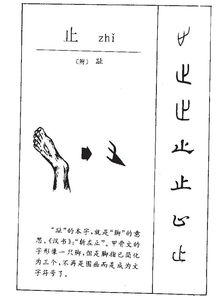 止 zhǐ
〔附〕趾
“趾”的本字,就是“脚”的意
思。《汉书》:“斩左止”。甲骨文的
字形像一只脚,但是脚指已简化
为三个,不再是图画而是成为文
字符号了。
止